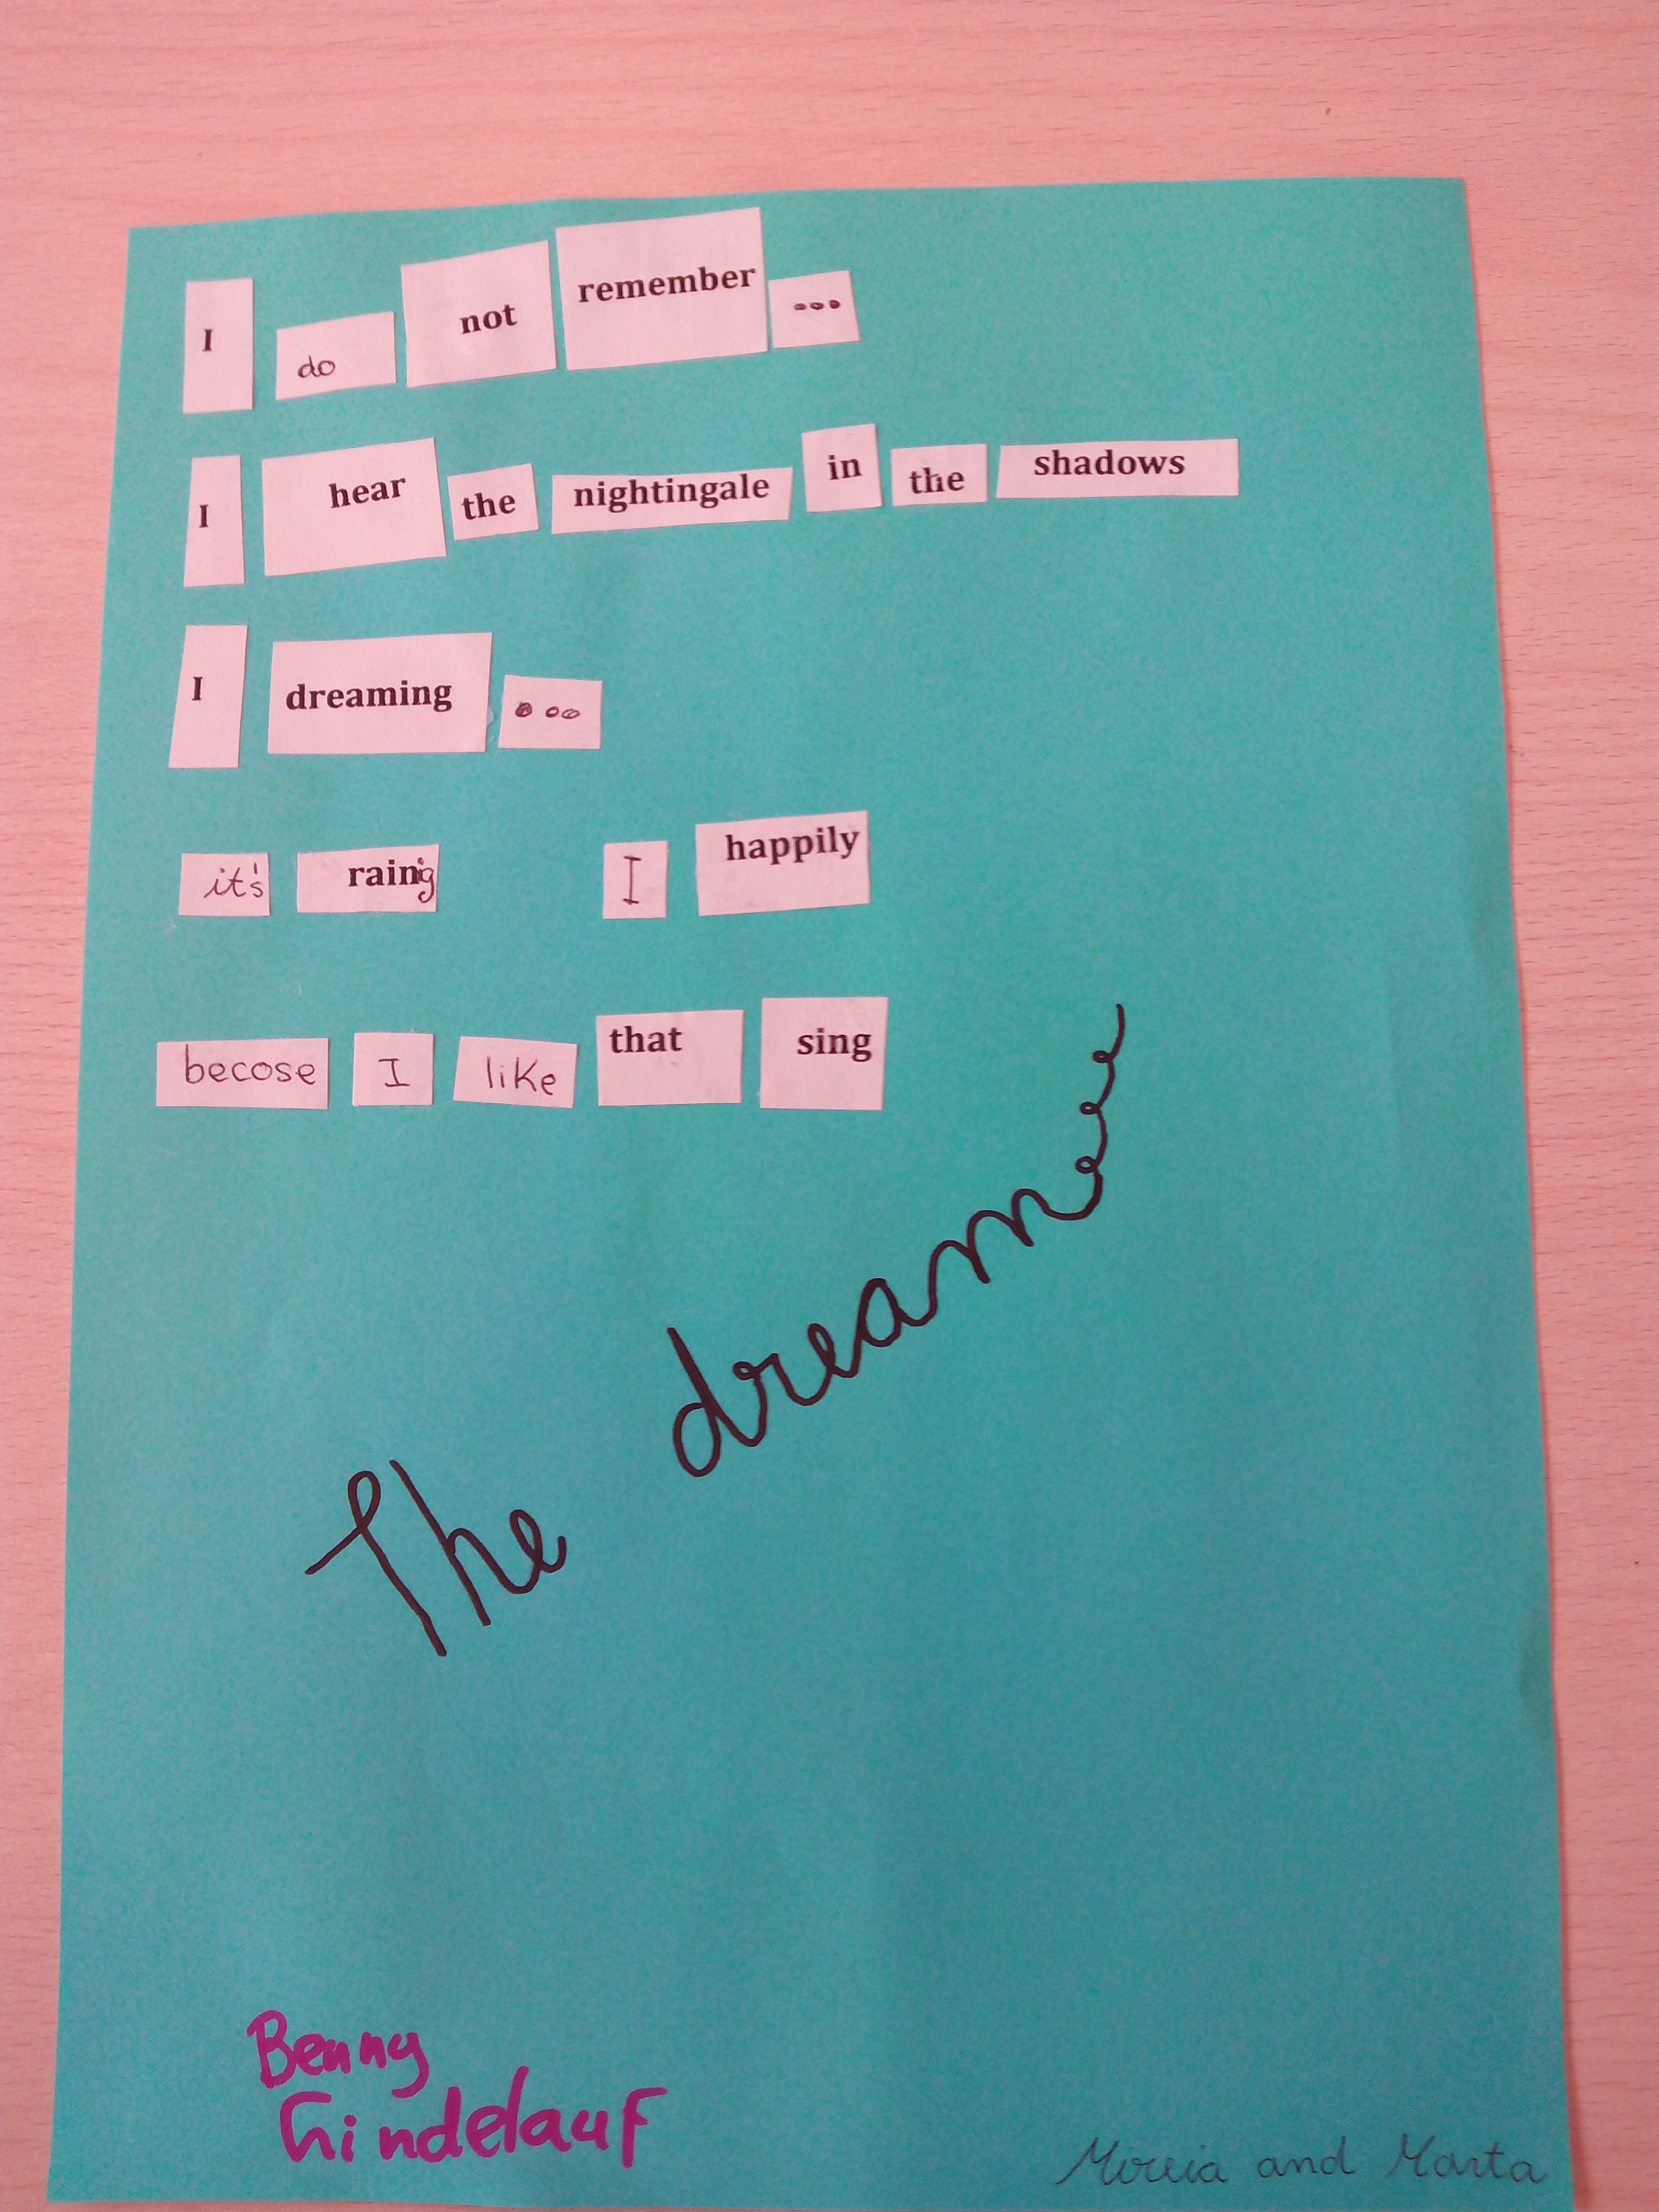 I do not remember ...
I hear the nightingale in the shadows
I dreaming ...
it's raing I happily
becose I like that sing
The dreameee
Benny
hindelauf
Mireia and Marta